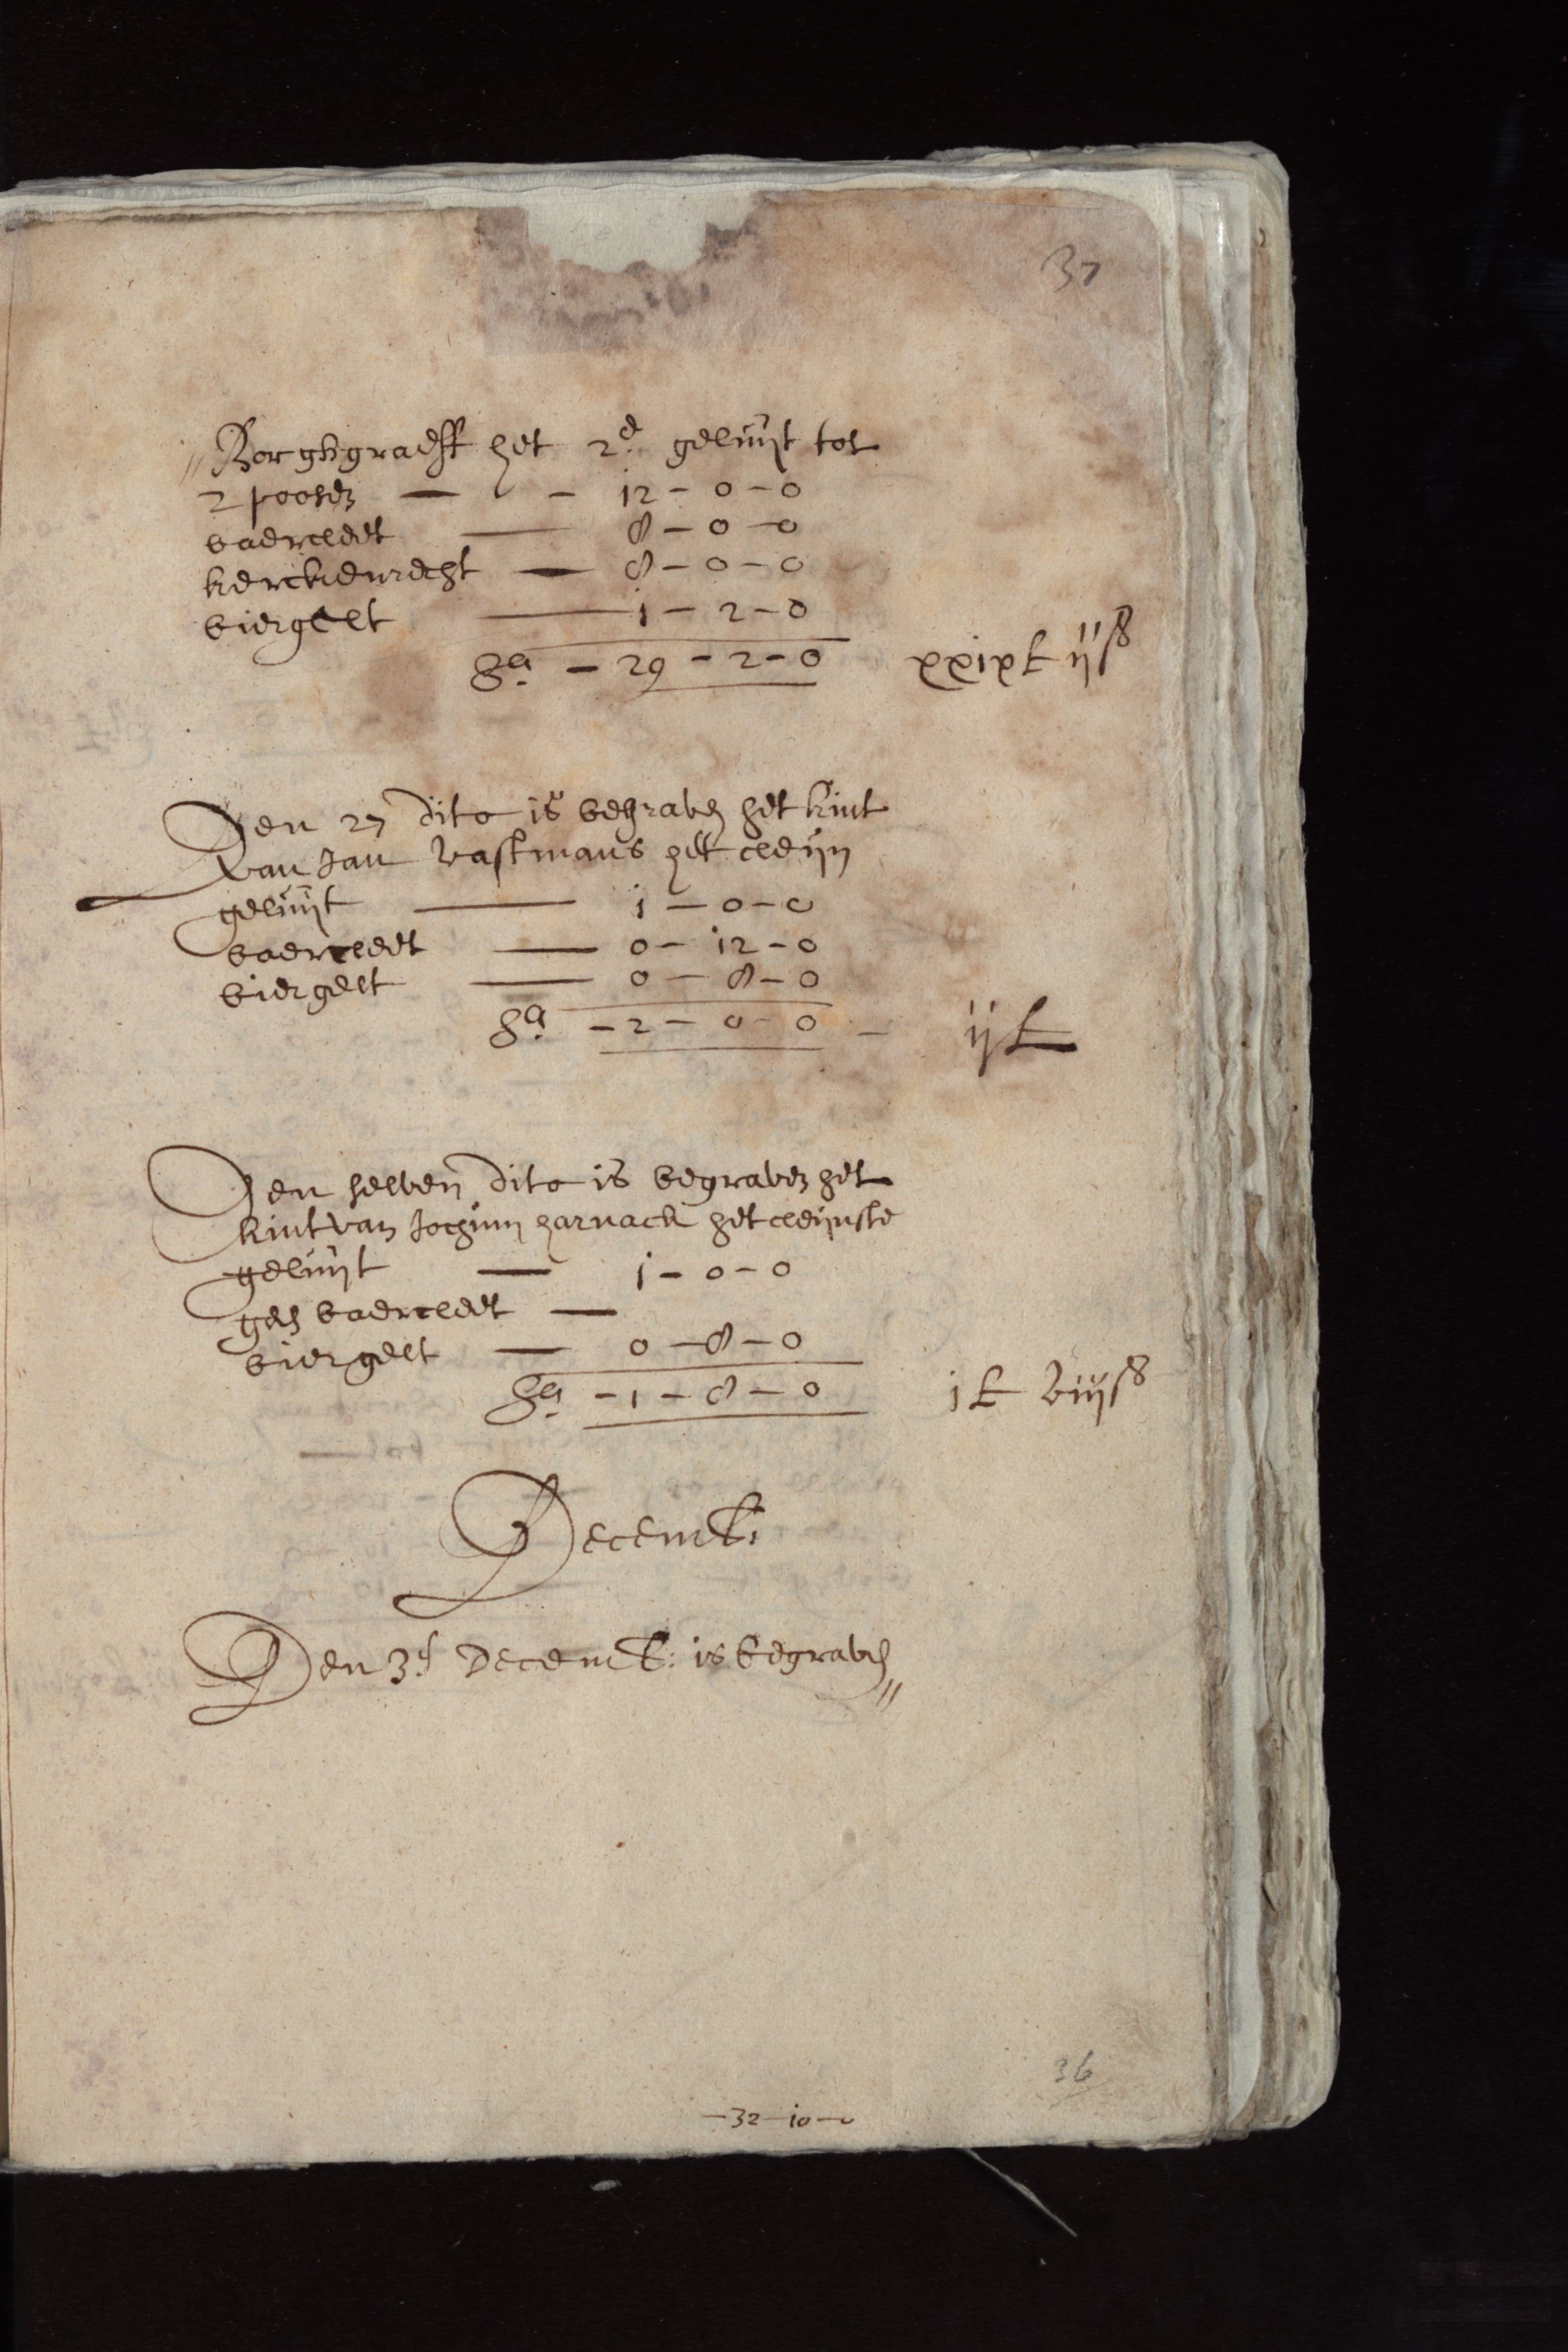 37
Borghgraeff het 2e geluijt tot
2 poosen — - 12 - 0 - 0
baercleet — 8 - 0 - 0
kerckenrecht — 8 - 0 - 0
biergelt — 1 - 2 - 0
Sa - 29 - 2 - 0 xxix £ ij ß
Den 27 dito is begraven het kint
van Jan Vastmans het cleijn
geluijt — 1 - 0 - 0
baercleet — 0 - 12 - 0
biergelt — 0 - 8 - 0
Sa - 2 - 0 - 0 - ij £
Den selven dito is begraven het
kint van Jochim Harnack het cleijnste
geluijt — 1 - 0 - 0
geen baercleet —
biergelt — 0 - 8 - 0
Sa - 1 - 8 - 0 i £ viij ß
Decemb:
Den 3e Decemb: is begraven
36
- 32 - 10 - 0